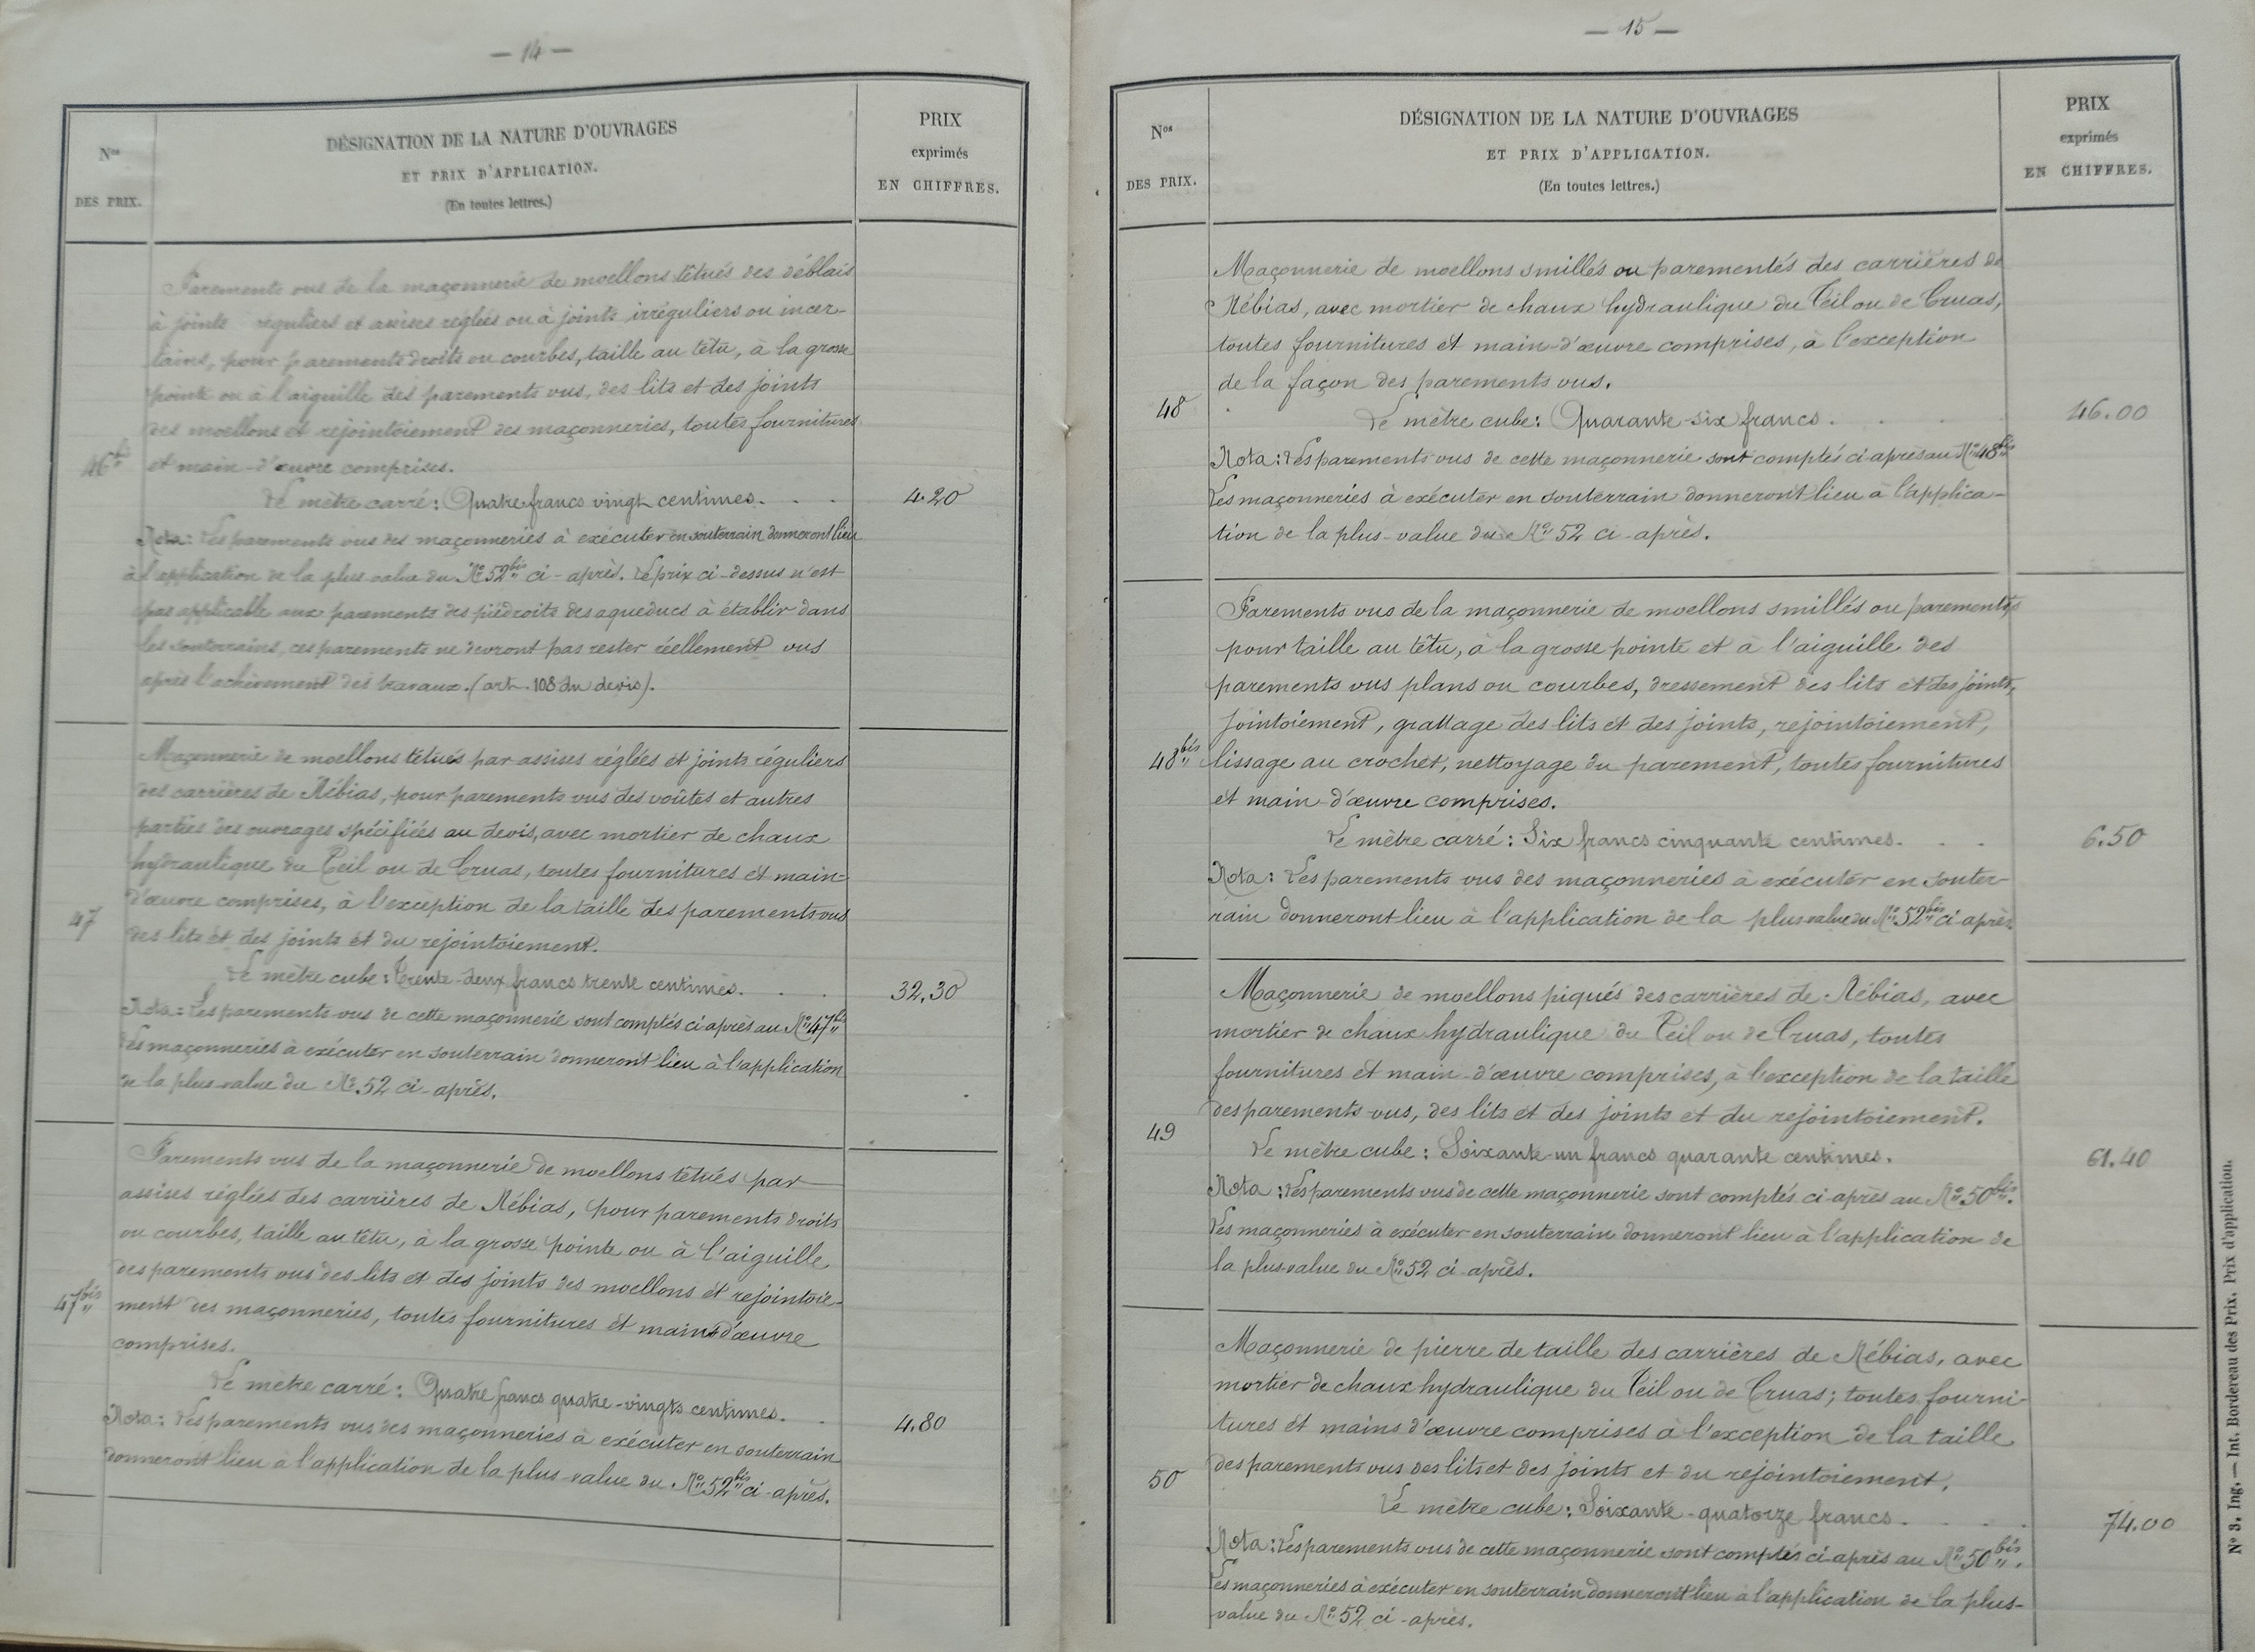 — 14 —
Nos
DES PRIX.
DÉSIGNATION DE LA NATURE D'OUVRAGES
ET PRIX D'APPLICATION.
(En toutes lettres.)
PRIX
exprimés
EN CHIFFRES.
Parements vus de la maçonnerie de moellons têtués des déblais
à joints réguliers et assises réglées ou à joints irréguliers ou incer-
tains, pour parements droits ou courbes, taille au têtu, à la grosse
pointe ou à l'aiguille des parements vus, des lits et des joints
des moellons et rejointoiement des maçonneries, toutes fournitures
46bis et main-d'œuvre comprises.
Le mètre carré: Quatre francs vingt centimes. . . 4.20
Nota: Les parements vus des maçonneries à exécuter en souterrain donneront lieu
à l'application de la plus value du No 52bis ci-après. Le prix ci-dessus n'est
pas applicable aux parements des piédroits des aqueducs à établir dans
les souterrains, ces parements ne devront pas rester réellement vus
après l'achèvement des travaux. (art. 108 du devis).
Maçonnerie de moellons têtués par assises réglées et joints réguliers
des carrières de Nébias, pour parements vus des voûtes et autres
parties des ouvrages spécifiées au devis, avec mortier de chaux
hydraulique du Teil ou de Cruas, toutes fournitures et main-
47 d'œuvre comprises, à l'exception de la taille des parements vus
des lits et des joints et du rejointoiement.
Le mètre cube: Trente-deux francs trente centimes. . . 32.30
Nota: Les parements vus de cette maçonnerie sont comptés ci après au No 47bis
Les maçonneries à exécuter en souterrain donneront lieu à l'application
de la plus-value du No 52 ci-après.
Parements vus de la maçonnerie de moellons têtués par
assises réglées des carrières de Nébias, pour parements droits
ou courbes, taille au têtu, à la grosse pointe ou à l'aiguille
des parements vus des lits et des joints des moellons et rejointoie-
47bis ment des maçonneries, toutes fournitures et mains d'œuvre
comprises.
Le mètre carré: Quatre francs quatre-vingts centimes. . 4.80
Nota: Les parements vus des maçonneries à exécuter en souterrain
donneront lieu à l'application de la plus-value du No 52bis ci-après.
— 15 —
Nos
DES PRIX.
DÉSIGNATION DE LA NATURE D'OUVRAGES
ET PRIX D'APPLICATION.
(En toutes lettres.)
PRIX
exprimés
EN CHIFFRES.
Maçonnerie de moellons smillés ou parementés des carrières de
Nébias, avec mortier de chaux hydraulique du Teil ou de Cruas,
toutes fournitures et main-d'œuvre comprises, à l'exception
de la façon des parements vus.
48 Le mètre cube: Quarante-six francs. . . 46.00
Nota: Les parements vus de cette maçonnerie sont comptés ci après au No 48bis
Les maçonneries à exécuter en souterrain donneront lieu à l'applica-
tion de la plus-value du No 52 ci-après.
Parements vus de la maçonnerie de moellons smillés ou parementés
pour taille au têtu, à la grosse pointe et à l'aiguille des
parements vus plans ou courbes, dressement des lits et des joints,
jointoiement, grattage des lits et des joints, rejointoiement,
48bis lissage au crochet, nettoyage du parement, toutes fournitures
et main-d'œuvre comprises.
Le mètre carré: Six francs cinquante centimes. . . 6.50
Nota: Les parements vus des maçonneries à exécuter en souter-
rain donneront lieu à l'application de la plus-value du No 52bis ci-après.
Maçonnerie de moellons piqués des carrières de Nébias, avec
mortier de chaux hydraulique du Teil ou de Cruas, toutes
fournitures et main-d'œuvre comprises, à l'exception de la taille
des parements vus, des lits et des joints et du rejointoiement.
49 Le mètre cube: Soixante-un francs quarante centimes. 61.40
Nota: Les parements vus de cette maçonnerie sont comptés ci-après au No 50bis.
Les maçonneries à exécuter en souterrain donneront lieu à l'application de
la plus-value du No 52 ci-après.
Maçonnerie de pierre de taille des carrières de Nébias, avec
mortier de chaux hydraulique du Teil ou de Cruas; toutes fourni-
tures et mains d'œuvre comprises à l'exception de la taille
50 des parements vus des lits et des joints et du rejointoiement.
Le mètre cube: Soixante-quatorze francs. . . . . 74.00
Nota: Les parements vus de cette maçonnerie sont comptés ci-après au No 50bis.
Les maçonneries à exécuter en souterrain donneront lieu à l'application de la plus-
value du No 52 ci-après.
No 3. Ing. — Int. Bordereau des Prix. Prix d'application.